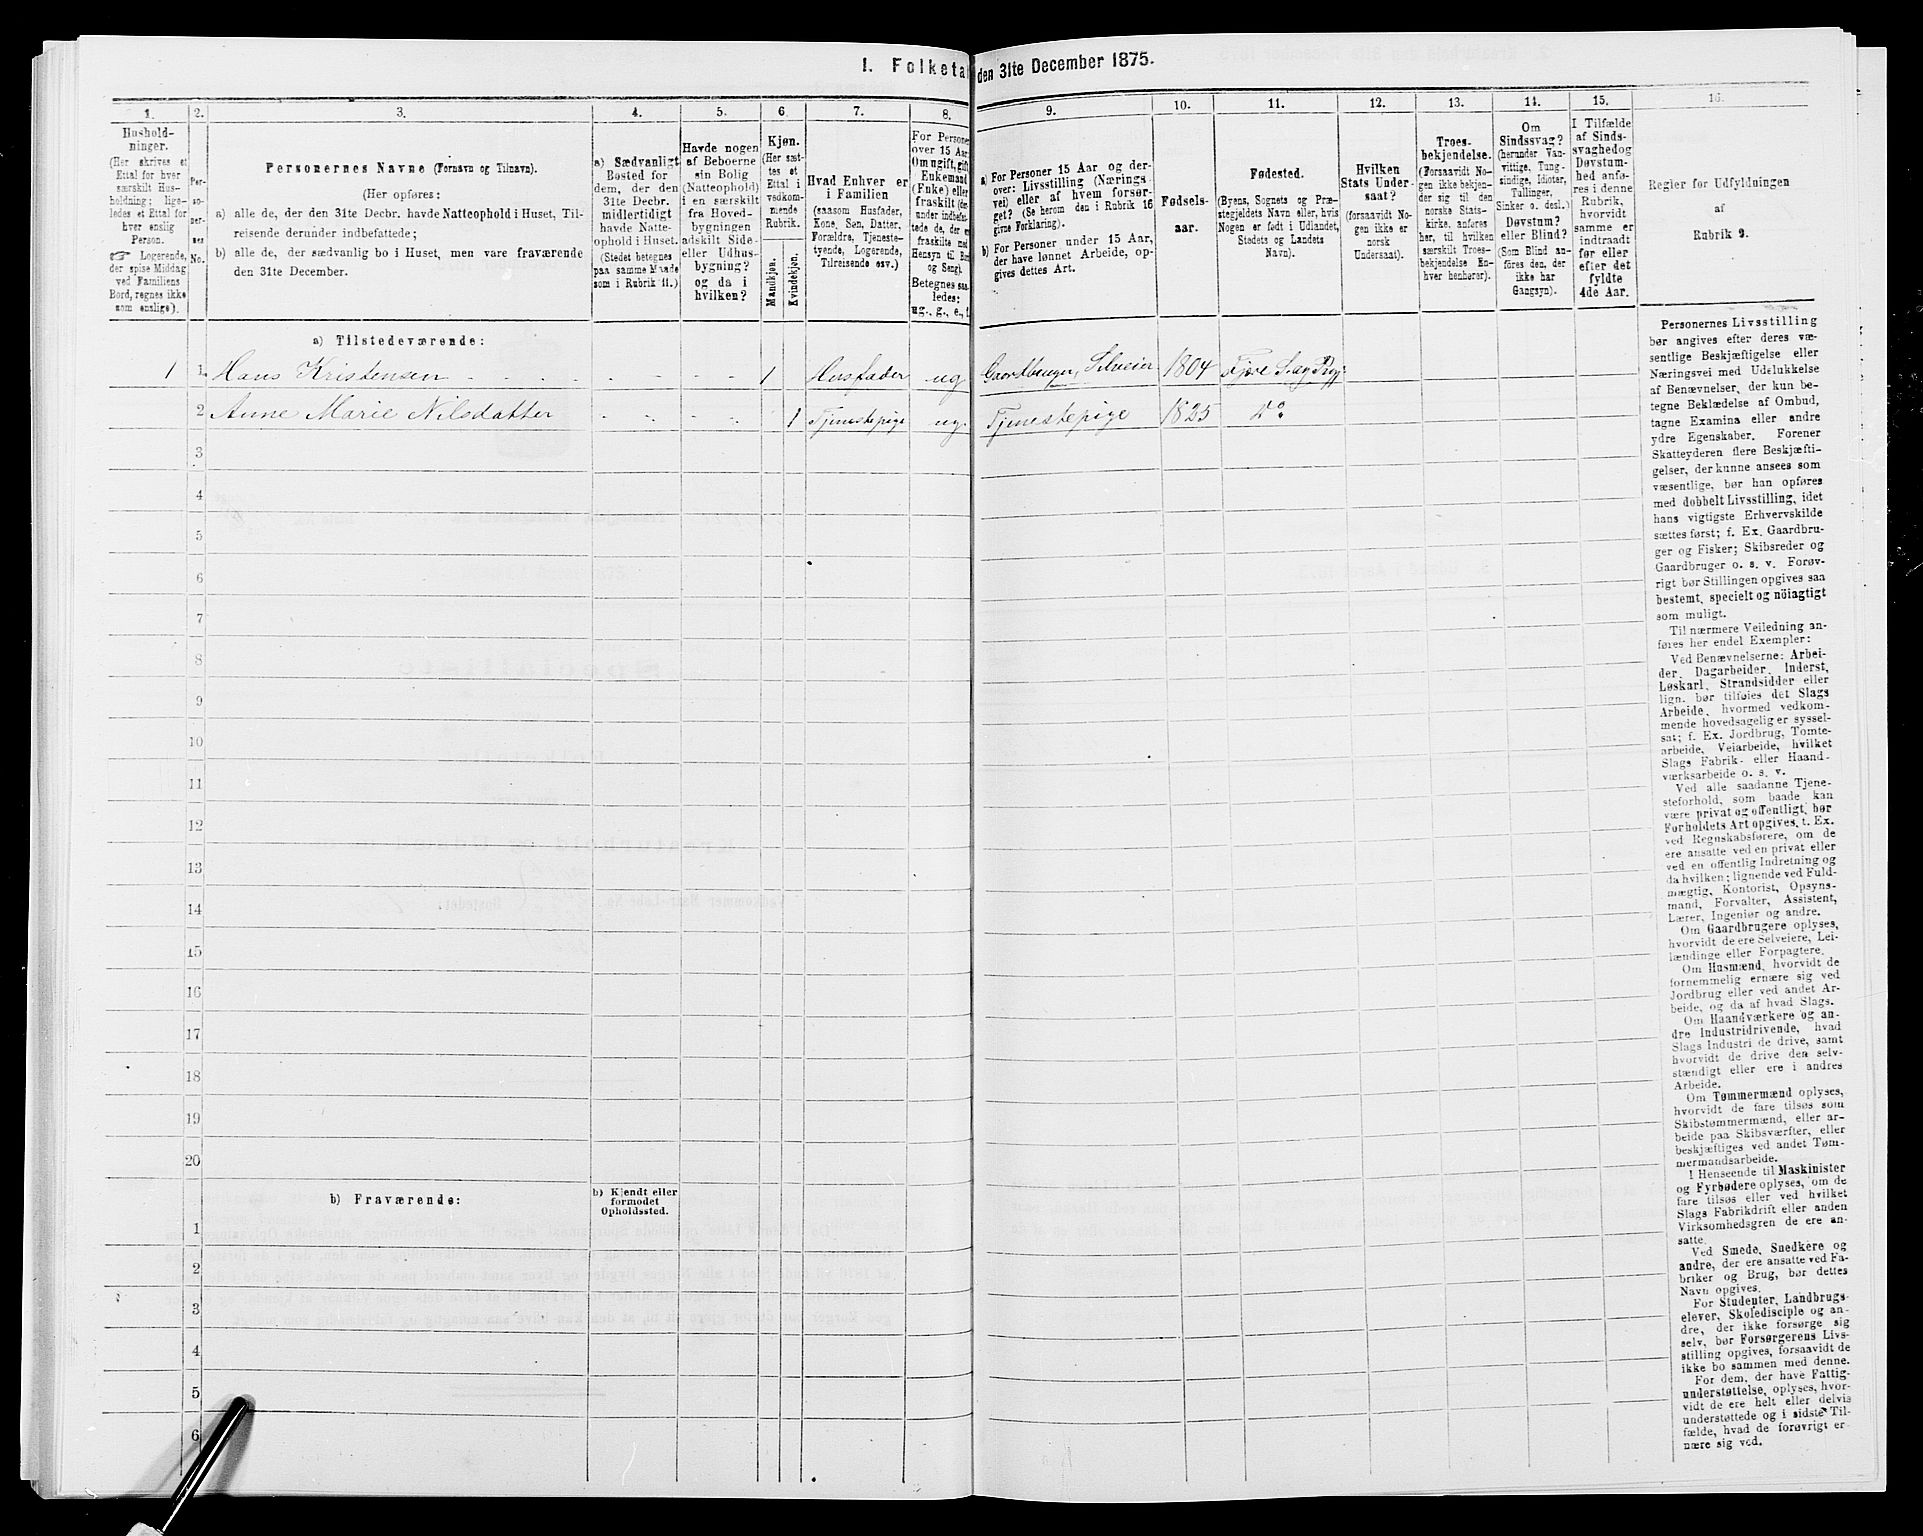 I. Folketal den 31te December 1875.
1. 2. 3. 4. 5. 6. 7. 8. 9. 10. 11. 12. 13. 14. 15. 16.
Hushold-
ninger.
(Her skrives et
Ettal for hver
særskilt Hus-
holdning; lige-
ledes et Ettal for
hver enslig
Person.
☞ Logerende,
der spise Middag
ved Familiens
Bord, regnes ikke
som enslige).
Per-
so-
ner-
nes
No.
Personernes Navne (Fornavn og Tilnavn).
(Her opføres:
a) alle de, der den 31te Decbr. havde Natteophold i Huset, Til-
reisende derunder indbefattede;
b) alle de, der sædvanlig bo i Huset, men vare fraværende
den 31te December.
a) Sædvanligt
Bosted for
dem, der den
31te Decbr.
midlertidigt
havde Natte-
ophold i Huset.
(Stedet betegnes
paa samme Maade
som i Rubrik 11.)
Havde nogen
af Beboerne
sin Bolig
(Natteophold)
i en særskilt
fra Hoved-
bygningen
adskilt Side-
eller Udhus-
bygning?
og da i
hvilken?
Kjøn.
(Her sæt-
tes et
Ettal i
vedkom-
mende
Rubrik.
Mandkjøn.
Kvindekjøn.
Hvad Enhver er
i Familien
(saasom Husfader,
Kone, Søn, Datter,
Forældre, Tjeneste-
tyende, Logerende,
Tilreisende osv.)
For Persone
over 15 Aar
Om ugift, gift
Enkemand
(Enke) eller
fraskilt (der
under indbefat-
tede de, der e
fraskilte med
Hensyn til Bo
og Seng).
Betegnes saa-
ledes:
ug., g., e., f.
a) For Personer 15 Aar og der-
over: Livsstilling (Nærings-
vei) eller af hvem forsør-
get? (Se herom den i Rubrik 16
givne Forklaring).
b) For Personer under 15 Aar,
der have lønnet Arbeide, op-
gives dettes Art.
Fødsels-
aar.
Fødested.
(Byens, Sognets og Præ-
stegjeldets Navn eller, hvis
Nogen er født i Udlandet,
Stedets og Landets
Navn).
Hvilken
Stats Under-
saat?
(forsaavidt No-
gen ikke er
norsk
Undersaat).
Troes-
bekjendelse.
(Forsaavidt No-
gen ikke bekjen-
der sig til den
norske Stats-
kirke, anføres
her, til hvilken
særskilt Troes-
bekjendelse En-
hver henhører).
Om
Sindssvag?
(herunder Van-
vittige, Tung-
sindige, Idioter,
Tullinger,
Sinker o. desl.)
Døvstum?
eller Blind?
(Som Blind an-
føres den, der
ikke har
Gangsyn).
I Tilfælde
af Sinds-
svaghed og
Døvstum-
hed anfø-
res i denne
Rubrik,
hvorvidt
samme er
indtraadt
før eller
efter det
fyldte
4de Aar.
Regler for Udfyldningen
af
Rubrik 9.
a) Tilstedeværende:
1 1. Hans Kristensen 1 Husfader ug Gaardbruger, Selveier 1804
2 Anne Marie Nilsdatter 1 Tjenestepige ug. Tjenestepige 1825 do
3
4
5
6
7
8
9
10
11
12
13
14
15
16
17
18
19
20
b) Fraværende:
b) Kjendt eller
formodet
Opholdssted.
1
2
3
4
5
6
Personernes Livsstilling
bør angives efter deres væ-
sentlige Beskjæftigelse eller
Næringsvei med Udelukkelse
af Benævnelser, der kun be-
tegne Beklædelse af Ombud,
tagne Examina eller andre
ydre Egenskaber. Forener
Skatteyderen flere Beskjæfti-
gelser, der kunne ansees som
væsentlige, bør han opføres
med dobbelt Livsstilling, idet
hans vigtigste Erhvervskilde
sættes først; f. Ex. Gaardbru-
ger og Fisker; Skibsreder og
Gaardbruger o. s. v. Forøv-
rigt bør Stillingen opgives saa
bestemt, specielt og nöiagtigt
som muligt.
Til nærmere Veiledning an-
føres her endel Exempler:
Ved Benævnelserne: Arbei-
der, Dagarbeider, Inderst,
Løskarl, Strandsidder eller
lign. bør tilføies det Slags
Arbeide, hvormed vedkom-
mende hovedsagelig er syssel-
sat; f. Ex. Jordbrug, Tomte-
arbeide, Veiarbeide, hvilket
Slags Fabrik- eller Haand-
værksarbeide o. s. v.
Ved alle saadanne Tjene-
steforhold, som baade kan
være privat og offentligt, bør
Forholdets Art opgives, t. Ex.
ved Regnskabsførere, om de
ere ansatte ved en privat eller
ved en offentlig Indretning og
da hvilken; lignende ved Fuld-
mægtig, Kontorist, Opsyns-
mand, Forvalter, Assistent,
Lærer, Ingeniør og andre.
Om Gaardbrugere oplyses,
hvorvidt de ere Selveiere, Lei-
lændinge eller Forpagtere.
Om Husmænd, hvorvidt de
fornemmelig ernære sig ved
Jordbrug eller ved andet Ar-
beide, og da af hvad Slags.
Om Haandværkere og an-
dre Industridrivende, hvad
Slags Industri de drive, samt
hvorvidt de drive den selv-
stændigt eller ere i andres
Arbeide.
Om Tømmermænd oplyses,
hvorvidt de fare tilsøs som
Skibstømmermænd, eller ar-
beide paa Skibsværfter, eller
beskjæftiges ved andet Tøm-
mermandsarbeide.
I Henseende til Maskinister
og Fyrbødere oplyses, om de
fare tilsøs eller ved hvilket
Slags Fabrikdrift eller anden
Virksomhedsgren de ere an-
satte.
Ved Smede, Snedkere og
andre, der ere ansatte ved Fa-
briker og Brug, bør dettes
Navn opgives.
For Studenter, Landbrugs-
elever, Skoledisciple og an-
dre, der ikke forsørge sig
selv, bør Forsørgerens Livs-
stilling opgives, forsaavidt de
ikke bo sammen med denne.
For dem, der have Fattig-
understøttelse, oplyses, hvor-
vidt de ere helt eller delvis
understøttede og i sidste Til-
fælde, hvad de forøvrigt er-
nære sig ved.